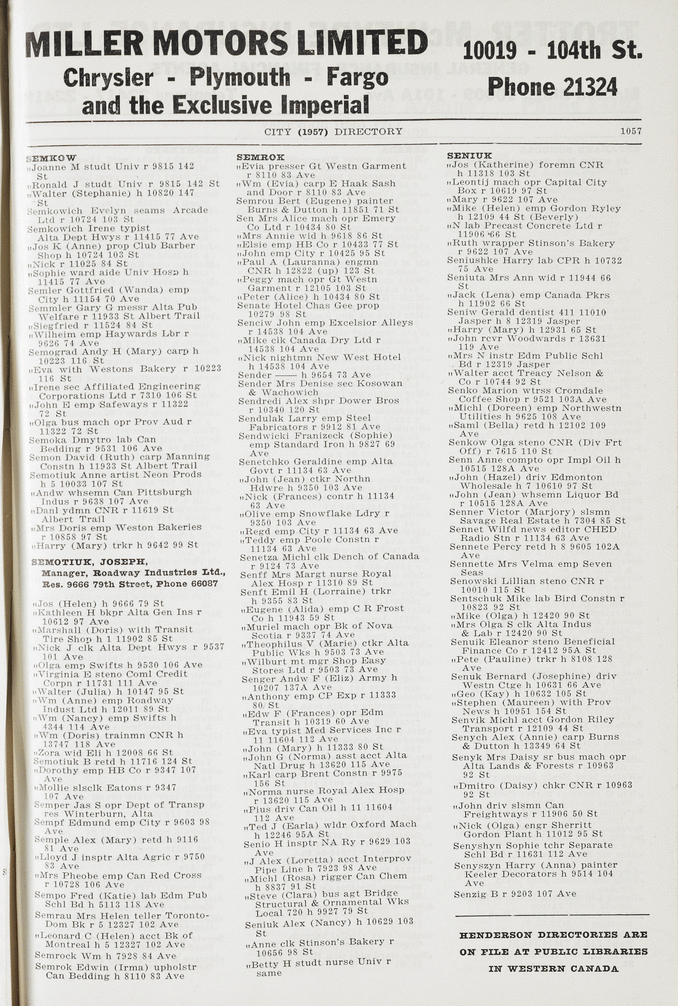 MILLER MOTORS LIMITED
Chrysler - Plymouth - Fargo
and the Exclusive Imperial
10019 - 104th St.
Phone 21324
CITY (1957) DIRECTORY
1057
SEMKOW
„Joanne M studt Univ r 9815 142
St
„Ronald J studt Univ r 9815 142 St
„Walter (Stephanie) h 10820 147
St
Semkowich Evelyn seams Arcade
Ltd r 10724 103 St
Semkowich Irene typist
Alta Dept Hwys r 11415 77 Ave
„Jos K (Anne) prop Club Barber
Shop h 10724 103 St
„Nick r 11025 84 St
„Sophie ward aide Univ Hosp h
11415 77 Ave
Semler Gottfried (Wanda) emp
City h 11154 70 Ave
Semmler Gary G messr Alta Pub
Welfare r 11933 St Albert Trail
„Siegfried r 11524 84 St
„Wilheim emp Haywards Lbr r
9626 74 Ave
Semograd Andy H (Mary) carp h
10223 116 St
„Eva with Westons Bakery r 10223
116 St
„Irene sec Affiliated Engineering
Corporations Ltd r 7310 106 St
„John E emp Safeways r 11322
72 St
„Olga bus mach opr Prov Aud r
11322 72 St
Semoka Dmytro lab Can
Bedding r 9531 106 Ave
Semon David (Ruth) carp Manning
Constn h 11933 St Albert Trail
Semotiuk Anne artist Neon Prods
h 5 10033 107 St
„Andw whsemn Can Pittsburgh
Indus r 9638 107 Ave
„Danl ydmn CNR r 11619 St
Albert Trail
„Mrs Doris emp Weston Bakeries
r 10858 97 St
„Harry (Mary) trkr h 9642 99 St
SEMOTIUK, JOSEPH,
Manager, Roadway Industries Ltd.,
Res. 9666 79th Street, Phone 66087
„Jos (Helen) h 9666 79 St
„Kathleen H bkpr Alta Gen Ins r
10612 97 Ave
„Marshall (Doris) with Transit
Tire Shop h 1 11902 85 St
„Nick J clk Alta Dept Hwys r 9537
101 Ave
„Olga emp Swifts h 9530 106 Ave
„Virginia E steno Coml Credit
Corpn r 11731 111 Ave
„Walter (Julia) h 10147 95 St
„Wm (Anne) emp Roadway
Indust Ltd h 12011 89 St
„Wm (Nancy) emp Swifts h
4344 114 Ave
„Wm (Doris) trainmn CNR h
13747 118 Ave
„Zora wid Eli h 12008 66 St
Semotiuk B retd h 11716 124 St
„Dorothy emp HB Co r 9347 107
Ave
„Mollie slsclk Eatons r 9347
107 Ave
Semper Jas S opr Dept of Transp
res Winterburn, Alta
Sempf Edmund emp City r 9603 98
Ave
Semple Alex (Mary) retd h 9116
81 Ave
„Lloyd J insptr Alta Agric r 9750
83 Ave
„Mrs Pheobe emp Can Red Cross
r 10728 106 Ave
Sempo Fred (Katie) lab Edm Pub
Schl Bd h 5113 118 Ave
Semrau Mrs Helen teller Toronto-
Dom Bk r 5 12327 102 Ave
„Leonard C (Helen) acct Bk of
Montreal h 5 12327 102 Ave
Semrock Wm h 7928 84 Ave
Semrok Edwin (Irma) upholstr
Can Bedding h 8110 83 Ave
SEMROK
„Evia presser Gt Westn Garment
r 8110 83 Ave
„Wm (Evia) carp E Haak Sash
and Door r 8110 83 Ave
Semrou Bert (Eugene) painter
Burns & Dutton h 11851 71 St
Sen Mrs Alice mach opr Emery
Co Ltd r 10434 80 St
„Mrs Annie wid h 9618 86 St
„Elsie emp HB Co r 10433 77 St
„John emp City r 10425 95 St
„Paul A (Lauranna) engnn
CNR h 12822 (up) 123 St
„Peggy mach opr Gt Westn
Garment r 12105 103 St
„Peter (Alice) h 10434 80 St
Senate Hotel Chas Gee prop
10279 98 St
Senciw John emp Excelsior Alleys
r 14538 104 Ave
„Mike clk Canada Dry Ltd r
14538 104 Ave
„Nick nightmn New West Hotel
h 14538 104 Ave
Sender —— h 9654 73 Ave
Sender Mrs Denise sec Kosowan
& Wachowich
Sendredi Alex shpr Dower Bros
r 10340 120 St
Sendulak Larry emp Steel
Fabricators r 9912 81 Ave
Sendwicki Franizeck (Sophie)
emp Standard Iron h 9827 69
Ave
Senetchko Geraldine emp Alta
Govt r 11134 63 Ave
„John (Jean) ctkr Northn
Hdwre h 9350 103 Ave
„Nick (Frances) contr h 11134
63 Ave
„Olive emp Snowflake Ldry r
9350 103 Ave
„Regd emp City r 11134 63 Ave
„Teddy emp Poole Constn r
11134 63 Ave
Senetza Michl clk Dench of Canada
r 9124 73 Ave
Senff Mrs Margt nurse Royal
Alex Hosp r 11310 89 St
Senft Emil H (Lorraine) trkr
h 9355 83 St
„Eugene (Alida) emp C R Frost
Co h 11943 59 St
„Muriel mach opr Bk of Nova
Scotia r 9337 74 Ave
„Theophilus V (Marie) ctkr Alta
Public Wks h 9503 73 Ave
„Wilburt mt mgr Shop Easy
Stores Ltd r 9503 73 Ave
Senger Andw F (Eliz) Army h
10207 137A Ave
„Anthony emp CP Exp r 11333
80 St
„Edw F (Frances) opr Edm
Transit h 10319 60 Ave
„Eva typist Med Services Inc r
11 11604 112 Ave
„John (Mary) h 11333 80 St
„John G (Norma) asst acct Alta
Natl Drug h 13620 115 Ave
„Karl carp Brent Constn r 9975
156 St
„Norma nurse Royal Alex Hosp
r 13620 115 Ave
„Pius driv Can Oil h 11 11604
112 Ave
„Ted J (Earla) wldr Oxford Mach
h 12246 95A St
Senio H insptr NA Ry r 9629 103
Ave
„J Alex (Loretta) acct Interprov
Pipe Line h 7923 98 Ave
„Michl (Rosa) rigger Can Chem
h 8837 91 St
„Steve (Clara) bus agt Bridge
Structural & Ornamental Wks
Local 720 h 9927 79 St
Seniuk Alex (Nancy) h 10629 103
St
„Anne clk Stinson's Bakery r
10656 98 St
„Betty H studt nurse Univ r
same
SENIUK
„Jos (Katherine) foremn CNR
h 11318 103 St
„Leontij mach opr Capital City
Box r 10619 97 St
„Mary r 9622 107 Ave
„Mike (Helen) emp Gordon Ryley
h 12109 44 St (Beverly)
„N lab Precast Concrete Ltd r
11906 66 St
„Ruth wrapper Stinson's Bakery
r 9622 107 Ave
Seniushke Harry lab CPR h 10732
75 Ave
Seniuta Mrs Ann wid r 11944 66
St
„Jack (Lena) emp Canada Pkrs
h 11902 66 St
Seniw Gerald dentist 411 11010
Jasper h 8 12319 Jasper
„Harry (Mary) h 12931 65 St
„John rcvr Woodwards r 13631
119 Ave
„Mrs N instr Edm Public Schl
Bd r 12319 Jasper
„Walter acct Treacy Nelson &
Co r 10744 92 St
Senko Marion wtrss Cromdale
Coffee Shop r 9521 103A Ave
„Michl (Doreen) emp Northwestn
Utilities h 9625 108 Ave
„Saml (Bella) retd h 12102 109
Ave
Senkow Olga steno CNR (Div Frt
Off) r 7615 110 St
Senn Anne compto opr Impl Oil h
10515 128A Ave
„John (Hazel) driv Edmonton
Wholesale h 7 10610 97 St
„John (Jean) whsemn Liquor Bd
r 10515 128A Ave
Senner Victor (Marjory) slsmn
Savage Real Estate h 7304 85 St
Sennet Wilfd news editor CHED
Radio Stn r 11134 63 Ave
Sennete Percy retd h 8 9605 102A
Ave
Sennette Mrs Velma emp Seven
Seas
Senowski Lillian steno CNR r
10010 115 St
Sentschuk Mike lab Bird Constn r
10823 92 St
„Mike (Olga) h 12420 90 St
„Mrs Olga S clk Alta Indus
& Lab r 12420 90 St
Senuik Eleanor steno Beneficial
Finance Co r 12412 95A St
„Pete (Pauline) trkr h 8108 128
Ave
Senuk Bernard (Josephine) driv
Westn Ctge h 10631 66 Ave
„Geo (Kay) h 10632 105 St
„Stephen (Maureen) with Prov
News h 10951 154 St
Senvik Michl acct Gordon Riley
Transport r 12109 44 St
Senych Alex (Annie) carp Burns
& Dutton h 13349 64 St
Senyk Mrs Daisy sr bus mach opr
Alta Lands & Forests r 10963
92 St
„Dmitro (Daisy) chkr CNR r 10963
92 St
„John driv slsmn Can
Freightways r 11906 50 St
„Nick (Olga) engr Sherritt
Gordon Plant h 11012 95 St
Senyshyn Sophie tchr Separate
Schl Bd r 11631 112 Ave
Senyszyn Harry (Anna) painter
Keeler Decorators h 9514 104
Ave
Senzig B r 9203 107 Ave
HENDERSON DIRECTORIES ARE
ON FILE AT PUBLIC LIBRARIES
IN WESTERN CANADA